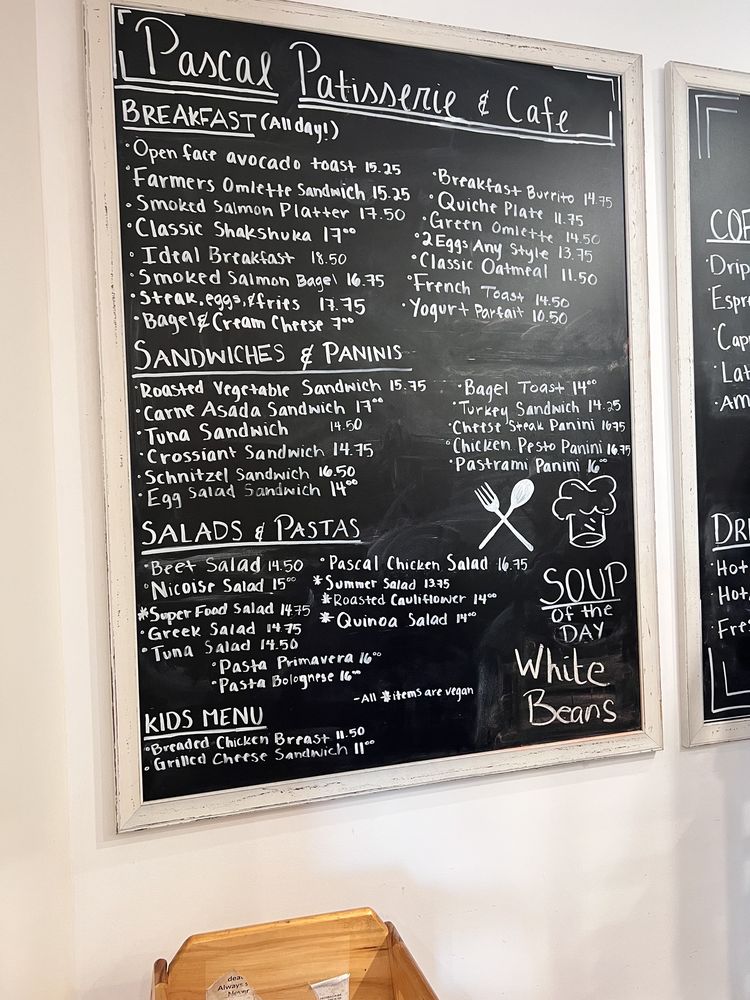 Pascal Patisserie & Cafe
BREAKFAST (All day!)
·Open face avocado toast 15.25
·Farmers Omlette Sandwich 15.25
·Smoked Salmon Platter 17.50
·Classic Shakshuka 17⁰⁰
·Ideal Breakfast 18.50
·Smoked Salmon Bagel 16.75
·Steak, eggs, & fries 17.75
·Bagel & Cream Cheese 7⁰⁰
·Breakfast Burrito 14.75
·Quiche Plate 11.75
·Green Omlette 14.50
·2 Eggs Any Style 13.75
·Classic Oatmeal 11.50
·French Toast 14.50
·Yogurt Parfait 10.50
SANDWICHES & PANINIS
·Roasted Vegetable Sandwich 15.75
·Carne Asada Sandwich 17⁰⁰
·Tuna Sandwich 14.50
·Crossiant Sandwich 14.75
·Schnitzel Sandwich 16.50
·Egg Salad Sandwich 14⁰⁰
·Bagel Toast 14⁰⁰
·Turkey Sandwich 14.25
·Cheese Steak Panini 16.75
·Chicken Pesto Panini 16.75
·Pastrami Panini 16⁰⁰
SALADS & PASTAS
·Beet Salad 14.50
·Nicoise Salad 15⁰⁰
*Super Food Salad 14.75
·Greek Salad 14.75
·Tuna Salad 14.50
·Pascal Chicken Salad 16.75
*Summer Salad 13.75
*Roasted Cauliflower 14⁰⁰
*Quinoa Salad 14⁰⁰
·Pasta Primavera 16⁰⁰
·Pasta Bolognese 16⁰⁰
-All * items are vegan
SOUP
Of the
DAY
White
Beans
KIDS MENU
·Breaded Chicken Breast 11.50
·Grilled Cheese Sandwich 11⁰⁰
·Drip
Always
Never